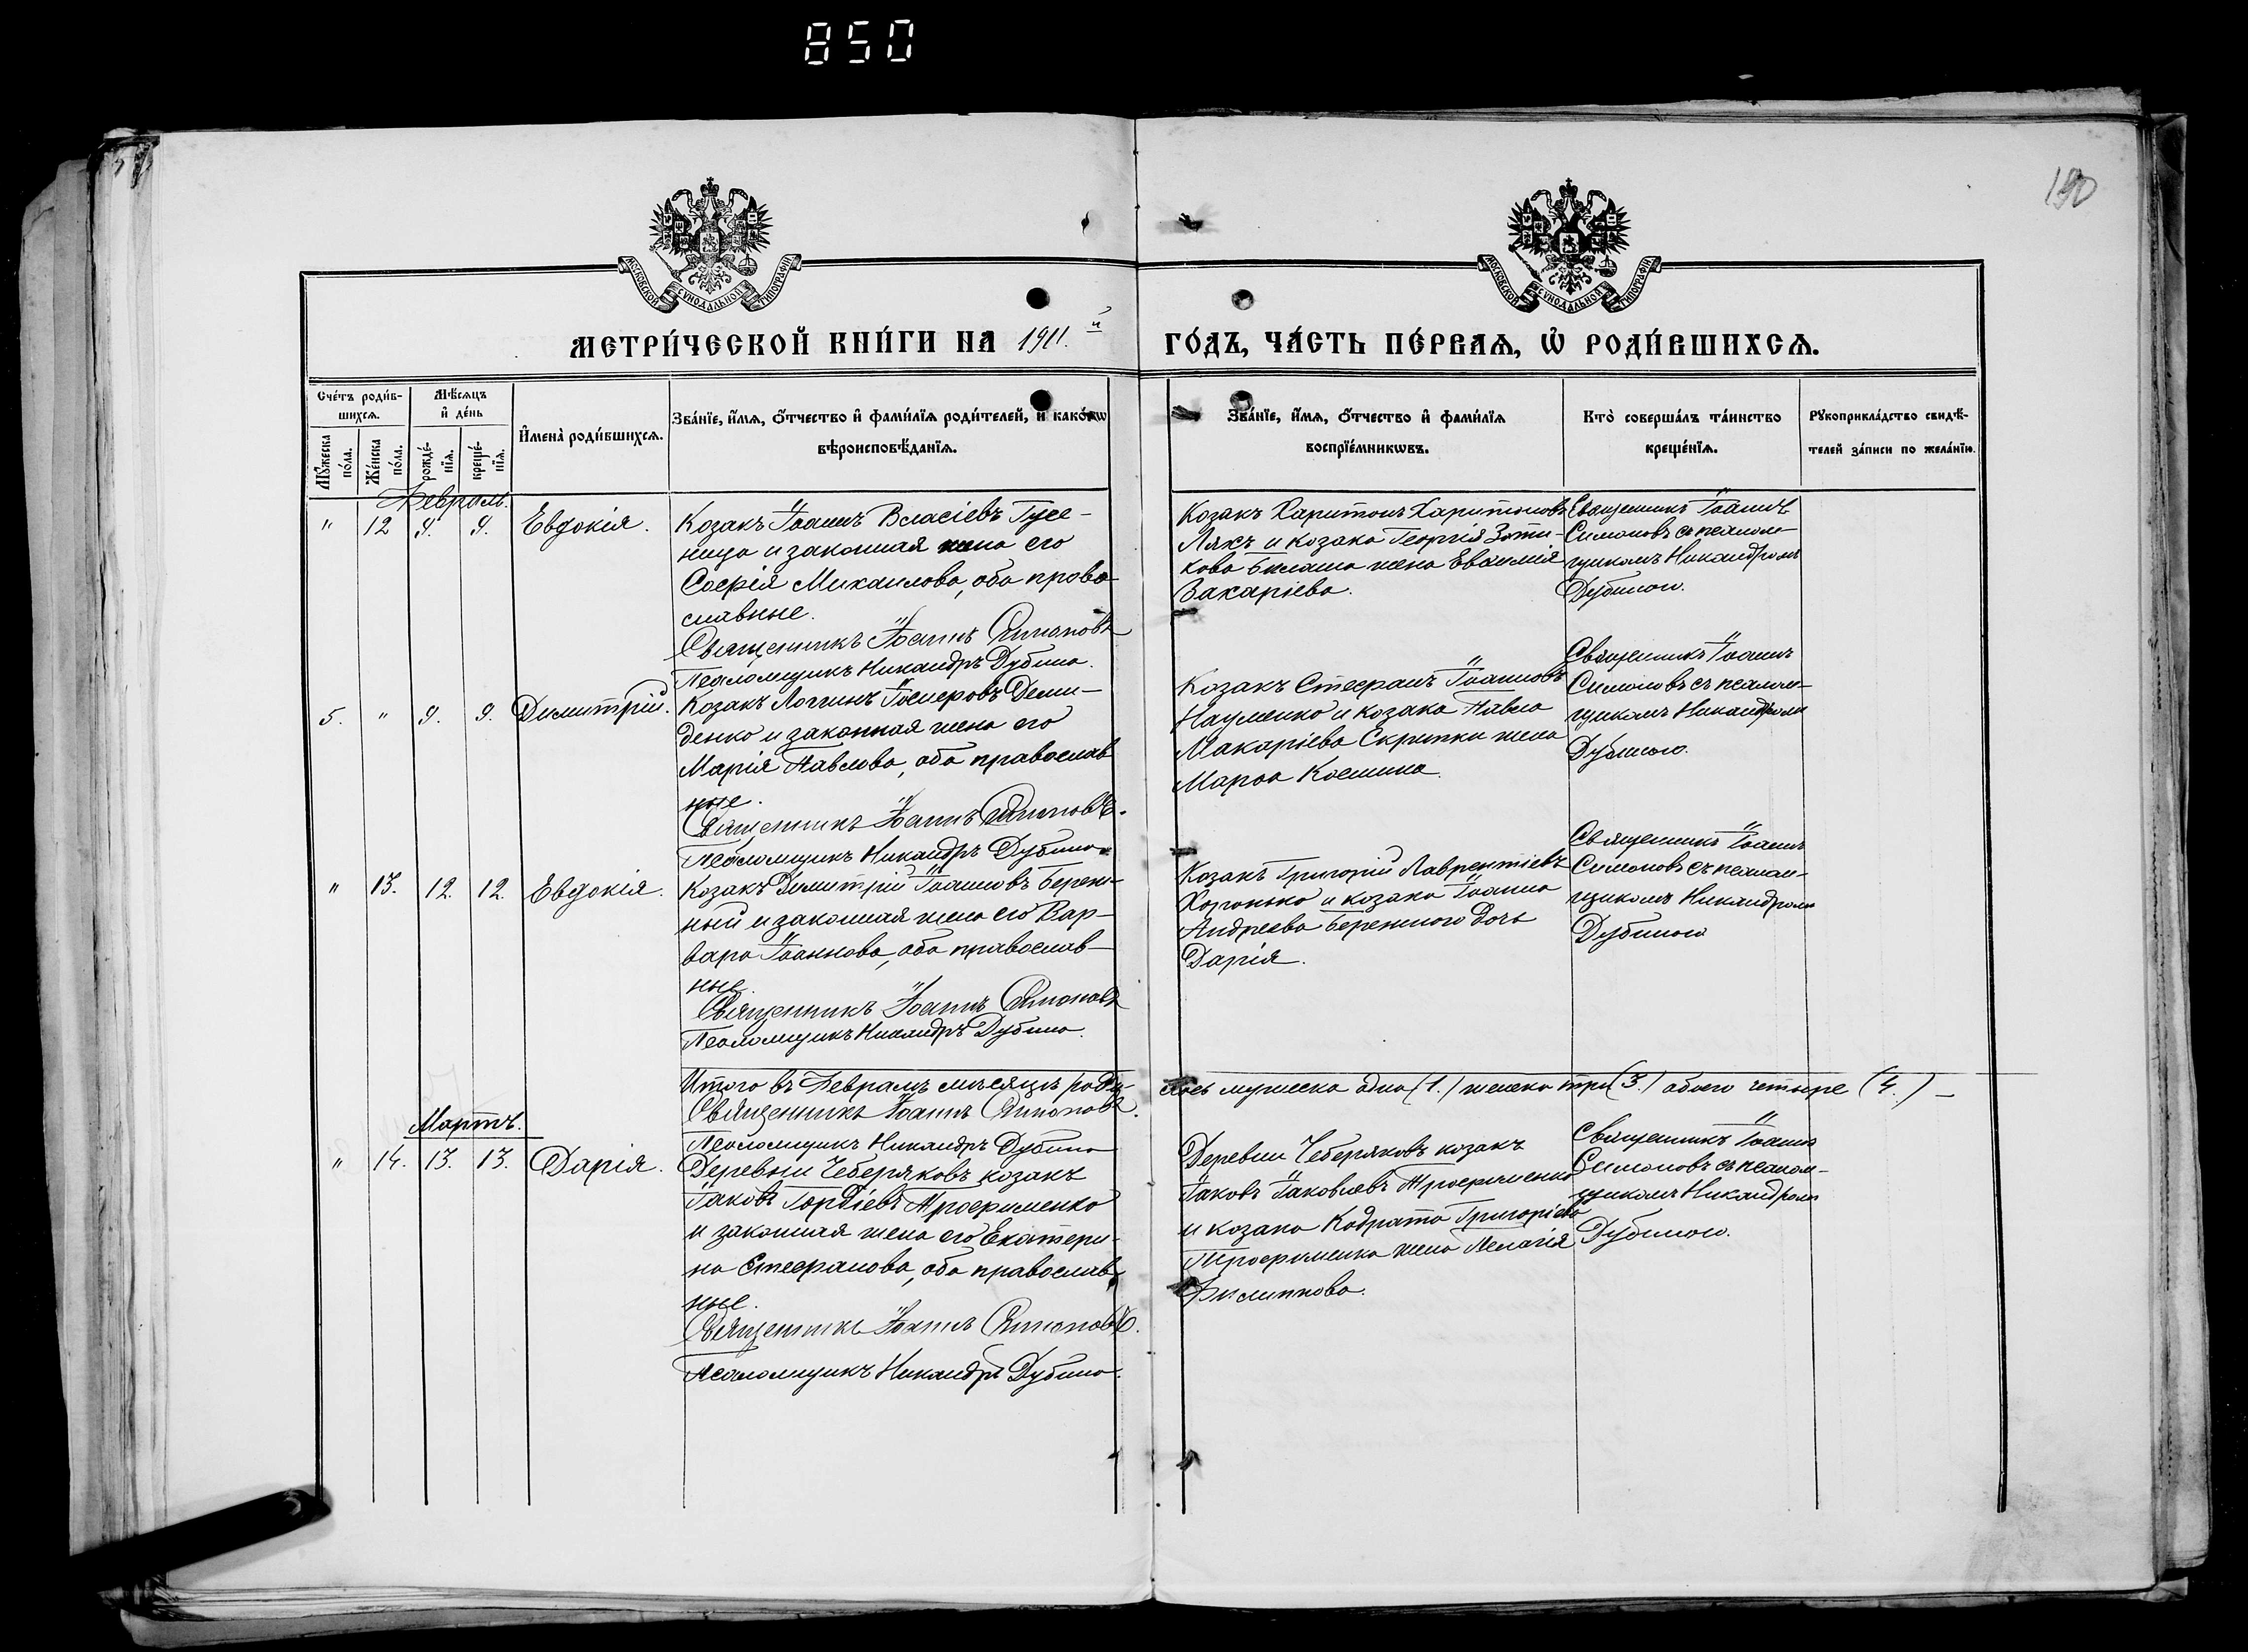 850
150
МОСКОВСКОЙ СѴНОДАЛЬНОЙ ТИПОГРАФІИ
МОСКОВСКОЙ СѴНОДАЛЬНОЙ ТИПОГРАФІИ
МЕТРИ́ЧЕСКОЙ КНИ́ГИ НА 1911.й ГО́ДЪ, ЧА́СТЬ ПЕ́РВАѦ, Ѡ РОДИ́ВШИХСѦ.
Сче́тъ роди́в-
шихсѧ.
Мꙋ́жеска
по́ла.
Же́нска
по́ла.
Мѣ́сѧцъ
и҆ де́нь
рожде́-
нїѧ.
креще́-
нїѧ.
И҆мена̀ роди́вшихсѧ.
Зва́нїе, и҆́мѧ, ѻ҆́тчество и҆ фами́лїѧ роди́телей, и҆ како́гѡ
вѣроисповѣ́данїѧ.
Зва́нїе, и҆́мѧ, ѻ҆́тчество и҆ фами́лїѧ
воспрїе́мникѡвъ.
Кто̀ соверша́лъ та́инство
креще́нїѧ.
Рꙋкоприкла́дство свидѣ́-
телей за́писи по жела́нїю.
Февраль.
" 12 9. 9. Евдокія.
Козакъ Іоаннъ Власіевъ Гусе-
ница и законная жена его
Софія Михаилова, оба право
славные.
Священникъ Іоаннъ Симоновъ
Псаломщикъ Никандръ Дубина.
Козакъ Харитонъ Харитоновъ
Ляхъ и козака Георгія Зоти-
кова Билаша жена Евфимія
Захаріева.
Священникъ Іоаннъ
Симоновъ съ псалом-
щикомъ Никандромъ
Дубиною.
5. " 9. 9. Димитрій.
Козакъ Логгинъ Іосифовъ Деми-
денко и законная жена его
Марія Павлова, оба православ
ные.
Священникъ Іоаннъ Симоновъ.
Псаломщикъ Никандръ Дубина.
Козакъ Стефанъ Іоанновъ
Науменко и козака Павла
Макаріева Скрипки жена
Марфа Косьмина.
Священникъ Іоаннъ
Симоновъ съ псалом-
щикомъ Никандромъ
Дубиною.
" 13. 12. 12. Евдокія.
Козакъ Димитрій Іоанновъ Береж-
ный и законная жена его Вар-
вара Іоаннова, оба православ-
ные.
Священникъ Іоаннъ Симоновъ
Псаломщикъ Никандръ Дубина.
Козакъ Григорій Лаврентіевъ
Хоронько и козака Іоанна
Андреева Бережного дочь
Дарія.
Священникъ Іоаннъ
Симоновъ съ псалом-
щикомъ Никандромъ
Дубиною
Итого въ Февралѣ мѣсяцѣ роди-
лось мужеска одно (1.) женска три (3.) обоего четыре (4.) —
Священникъ Іоаннъ Симоновъ.
Псаломщикъ Никандръ Дубина
Мартъ.
" 14. 13. 13. Дарія.
Деревни Чеберяковъ козакъ
Іаковъ Гордіевъ Трофименко
и законная жена его Екатери-
на Стефанова, оба православ-
ные.
Священникъ Іоаннъ Симоновъ.
Псаломщикъ Никандръ Дубина.
Деревни Чеберяковъ козакъ
Іаковъ Іаковлевъ Трофименко
и козака Кодрата Григоріева
Трофименка жена Пелагія
Филиппова.
Священникъ Іоаннъ
Симоновъ съ псалом-
щикомъ Никандромъ
Дубиною.